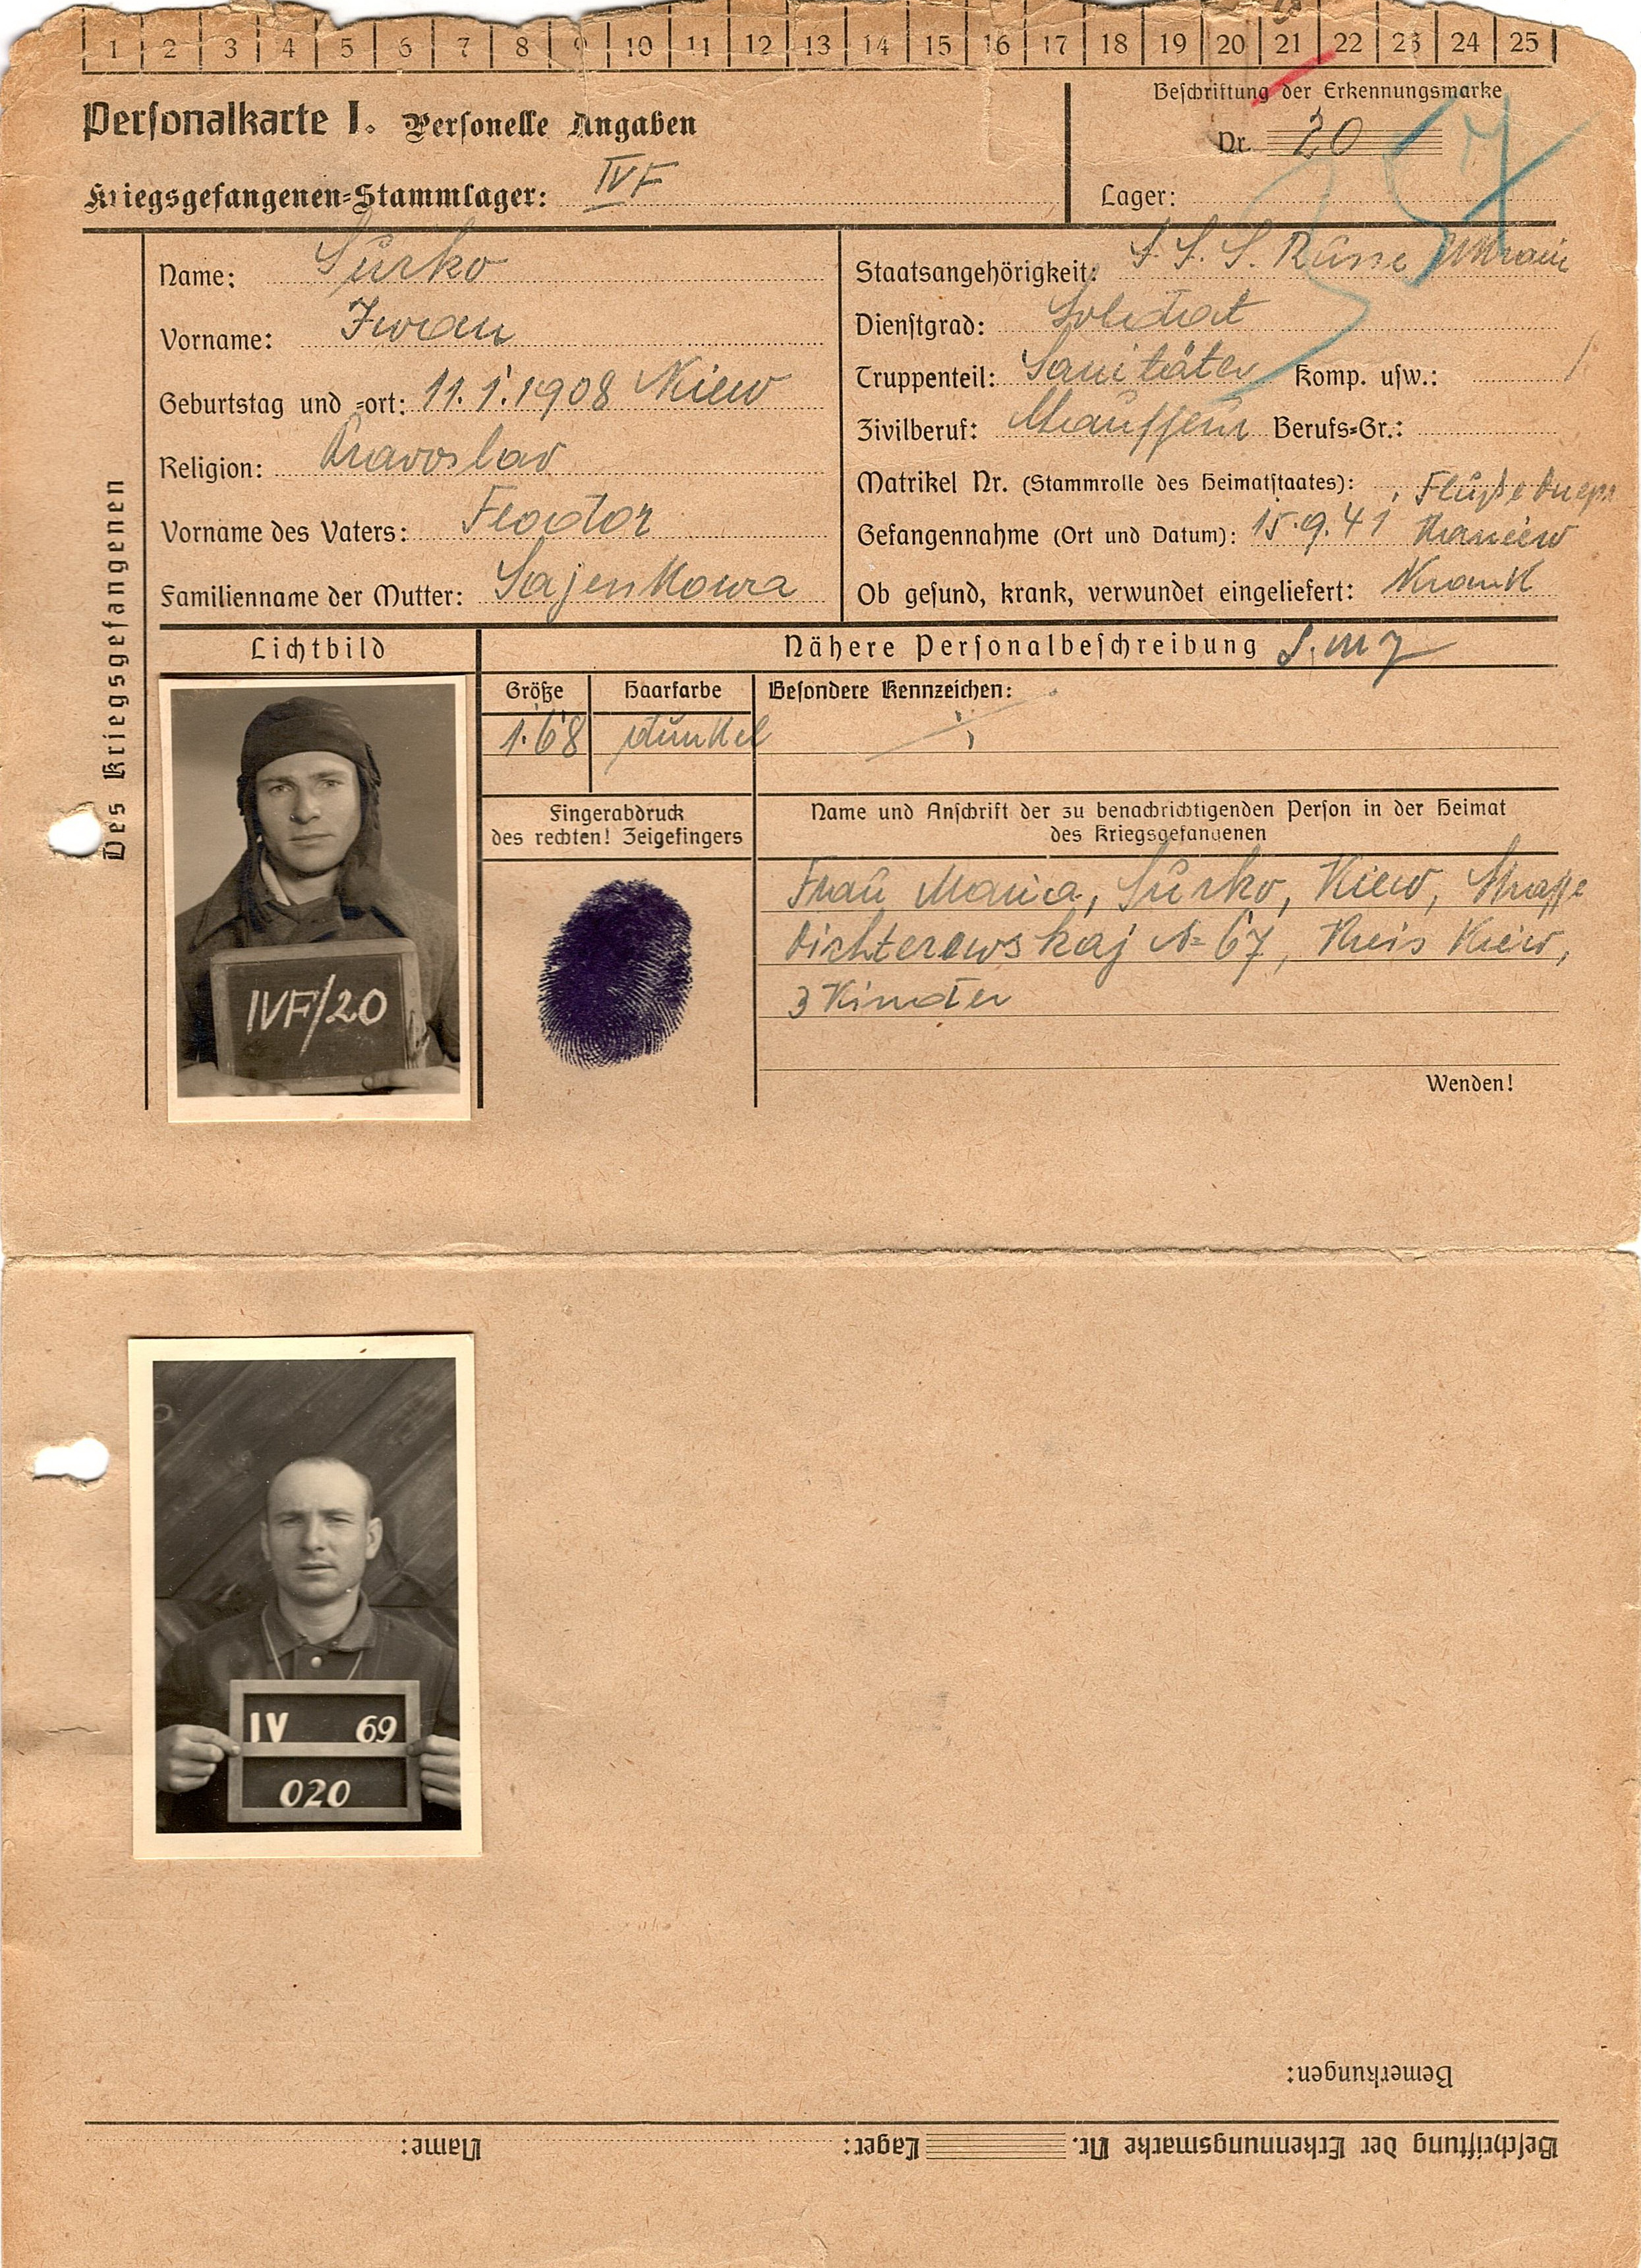 1 2 3 4 5 6 7 8 9 10 11 12 13 14 15 16 17 18 19 20 21 22 23 24 25
Personalkarte I. Personelle Angaben
Beschriftung der Erkennungsmarke
Nr. 20
Kriegsgefangenen-Stammlager: IVF
Lager:
Des Kriegsgefangenen
Name: Surko
Vorname: Iwan
Geburtstag und -ort: 11.1.1908 Kiew
Religion: Pravoslav
Vorname des Vaters: Feodor
Familienname der Mutter: Sajenkowa
Staatsangehörigkeit: Russe Ukrain
Dienstgrad: Soldat
Truppenteil: Sanitäter Komp. usw.:
Zivilberuf: Chauffeur Berufs-Gr.:
Matrikel Nr. (Stammrolle des Heimatstaates):
Gefangennahme (Ort und Datum): 15.9.41
Ob gesund, krank, verwundet eingeliefert: Krank
Lichtbild
Nähere Personalbeschreibung
Größe Haarfarbe Besondere Kennzeichen:
1.68 dunkel
Fingerabdruck
des rechten! Zeigefingers
Name und Anschrift der zu benachrichtigenden Person in der Heimat
des Kriegsgefangenen
Frau Maria, Surko, Kiew, Strasse
№ 67, Kreis Kiew,
3 Kinder
Wenden!
IVF/20
IV 69
020
Bemerkungen:
Beschriftung der Erkennungsmarke Nr. Lager: Name: